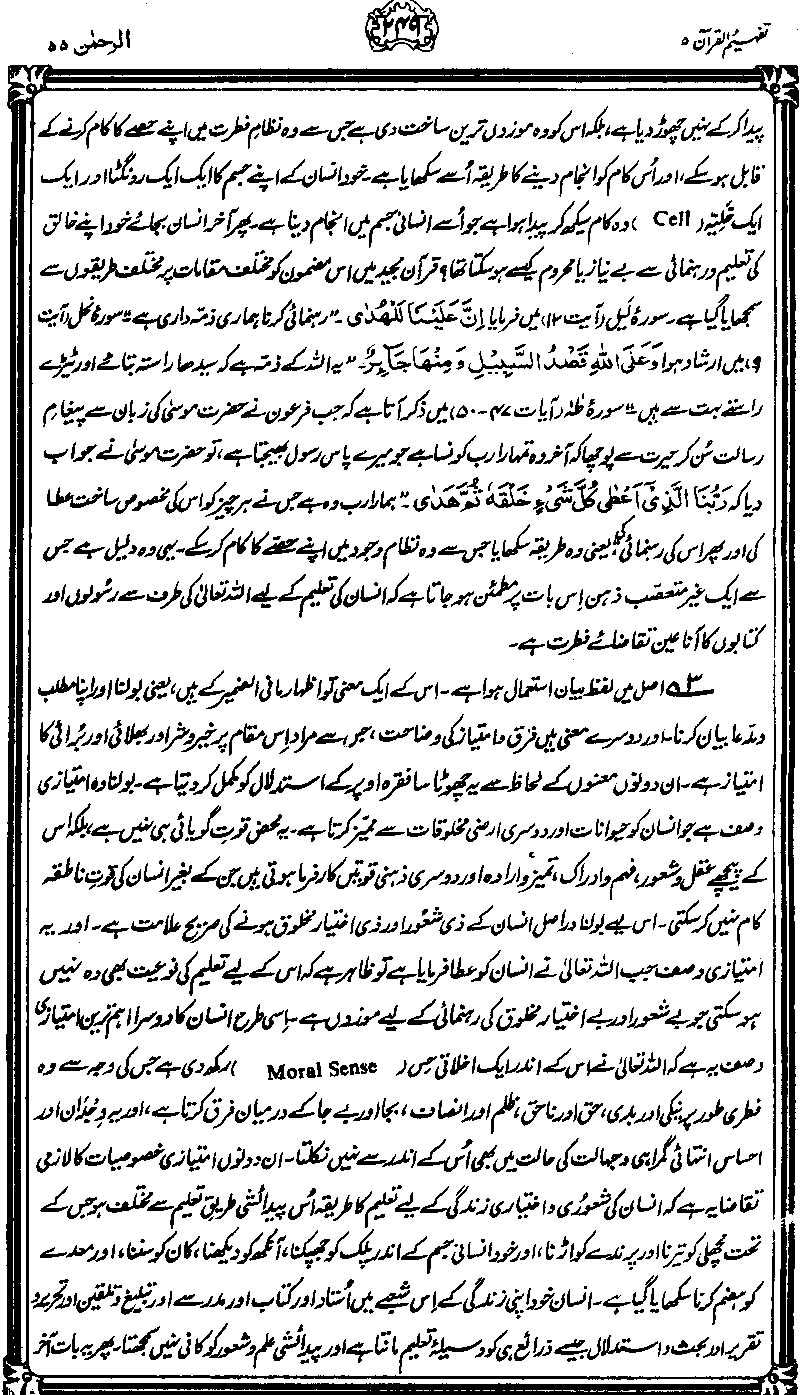 تفہیم القرآن ۵
۲۴۹
الرحمٰن ۵۵
پیدا کر کے نہیں چھوڑ دیا ہے، بلکہ اس کو وہ موزوں ترین ساخت دی ہے جس سے وہ نظامِ فطرت میں اپنے حصے کا کام کرنے کے
قابل ہو سکے، اور اُس کام کو انجام دینے کا طریقہ اُسے سکھایا ہے۔ خود انسان کے اپنے جسم کا ایک ایک رونگٹا اور ایک
ایک خَلِیّہ (Cell) وہ کام سیکھ کر پیدا ہوا ہے جو اُسے انسانی جسم میں انجام دینا ہے۔ پھر آخر انسان بجائے خود اپنے خالق
کی تعلیم و رہنمائی سے بے نیاز یا محروم کیسے ہو سکتا تھا؟ قرآن مجید میں اس مضمون کو مختلف مقامات پر مختلف طریقوں سے
سمجھایا گیا ہے۔ سورۂ لَیل (آیت ۱۲) میں فرمایا اِنَّ عَلَیْنَا لَلْھُدٰی۔ "رہنمائی کرنا ہماری ذمہ داری ہے"۔ سورۂ نحل (آیت
۹) میں ارشاد ہوا وَعَلَی اللّٰہِ قَصْدُ السَّبِیْلِ وَمِنْھَا جَآئِرٌ۔ "یہ اللہ کے ذمہ ہے کہ سیدھا راستہ بتائے اور ٹیڑے
راستے بہت سے ہیں"۔ سورۂ طٰہٰ (آیات ۴۷-۵۰) میں ذکر آتا ہے کہ جب فرعون نے حضرت موسیٰ کی زبان سے پیغامِ
رسالت سُن کر حیرت سے پوچھا کہ آخر وہ تمہارا رب کونسا ہے جو میرے پاس رسول بھیجتا ہے، تو حضرت موسیٰ نے جواب
دیا کہ رَبُّنَا الَّذِیْٓ اَعْطٰی کُلَّ شَیْءٍ خَلْقَہٗ ثُمَّ ھَدٰی۔ "ہمارا رب وہ ہے جس نے ہر چیز کو اس کی مخصوص ساخت عطا
کی اور پھر اس کی رہنمائی کی" یعنی وہ طریقہ سکھایا جس سے وہ نظامِ وجود میں اپنے حصّے کا کام کر سکے۔ یہی وہ دلیل ہے جس
سے ایک غیر متعصّب ذہن اِس بات پر مطمئن ہو جاتا ہے کہ انسان کی تعلیم کے لیے اللہ تعالیٰ کی طرف سے رسُولوں اور
کتابوں کا آنا عین تقاضائے فطرت ہے۔
۳؎ اصل میں لفظ بیان استعمال ہوا ہے۔ اس کے ایک معنی تو اظہار مافی الضمیر کے ہیں، یعنی بولنا اور اپنا مطلب
و مدّعا بیان کرنا۔ اور دوسرے معنی ہیں فرق و امتیاز کی وضاحت، جس سے مراد اِس مقام پر خیر و شر اور بھلائی اور بُرائی کا
امتیاز ہے۔ ان دونوں معنوں کے لحاظ سے یہ چھوٹا سا فقرہ اوپر کے استدلال کو مکمل کر دیتا ہے۔ بولنا وہ امتیازی
وصف ہے جو انسان کو حیوانات اور دوسری ارضی مخلوقات سے ممیّز کرتا ہے۔ یہ محض قوتِ گویائی ہی نہیں ہے بلکہ اس
کے پیچھے عقل و شعور، فہم و ادراک، تمیز و ارادہ اور دوسری ذہنی قوتیں کارفرما ہوتی ہیں جن کے بغیر انسان کی قوتِ ناطقہ
کام نہیں کر سکتی۔ اس لیے بولنا دراصل انسان کے ذی شعُور اور ذی اختیار مخلوق ہونے کی صریح علامت ہے۔ اور یہ
امتیازی وصف جب اللہ تعالیٰ نے انسان کو عطا فرمایا ہے تو ظاہر ہے کہ اس کے لیے تعلیم کی نوعیت بھی وہ نہیں
ہو سکتی جو بے شعور اور بے اختیار مخلوق کی رہنمائی کے لیے موزوں ہے۔ اِسی طرح انسان کا دوسرا اہم ترین امتیازی
وصف یہ ہے کہ اللہ تعالیٰ نے اس کے اندر ایک اخلاقی حِس (Moral Sense) رکھ دی ہے جس کی وجہ سے وہ
فطری طور پر نیکی اور بدی، حق اور ناحق، ظلم اور انصاف، بجا اور بے جا کے درمیان فرق کرتا ہے، اور یہ وِجدان اور
احساس انتہائی گمراہی و جہالت کی حالت میں بھی اُس کے اندر سے نہیں نکلتا۔ ان دونوں امتیازی خصوصیات کا لازمی
تقاضا یہ ہے کہ انسان کی شعُوری و اختیاری زندگی کے لیے تعلیم کا طریقہ اُس پیدائشی طریقِ تعلیم سے مختلف ہو جس کے
تحت مچھلی کو تیرنا اور پرندے کو اڑنا، اور خود انسانی جسم کے اندر پلک کو جھپکنا، آنکھ کو دیکھنا، کان کو سننا، اور معدے
کو ہضم کرنا سکھایا گیا ہے۔ انسان خود اپنی زندگی کے اِس شعبے میں اُستاد اور کتاب اور مدرسے اور تبلیغ و تلقین اور تحریر و
تقریر اور بحث و استدلال جیسے ذرائع ہی کو وسیلۂ تعلیم مانتا ہے اور پیدائشی علم و شعور کو کافی نہیں سمجھتا۔ پھر یہ بات آخر